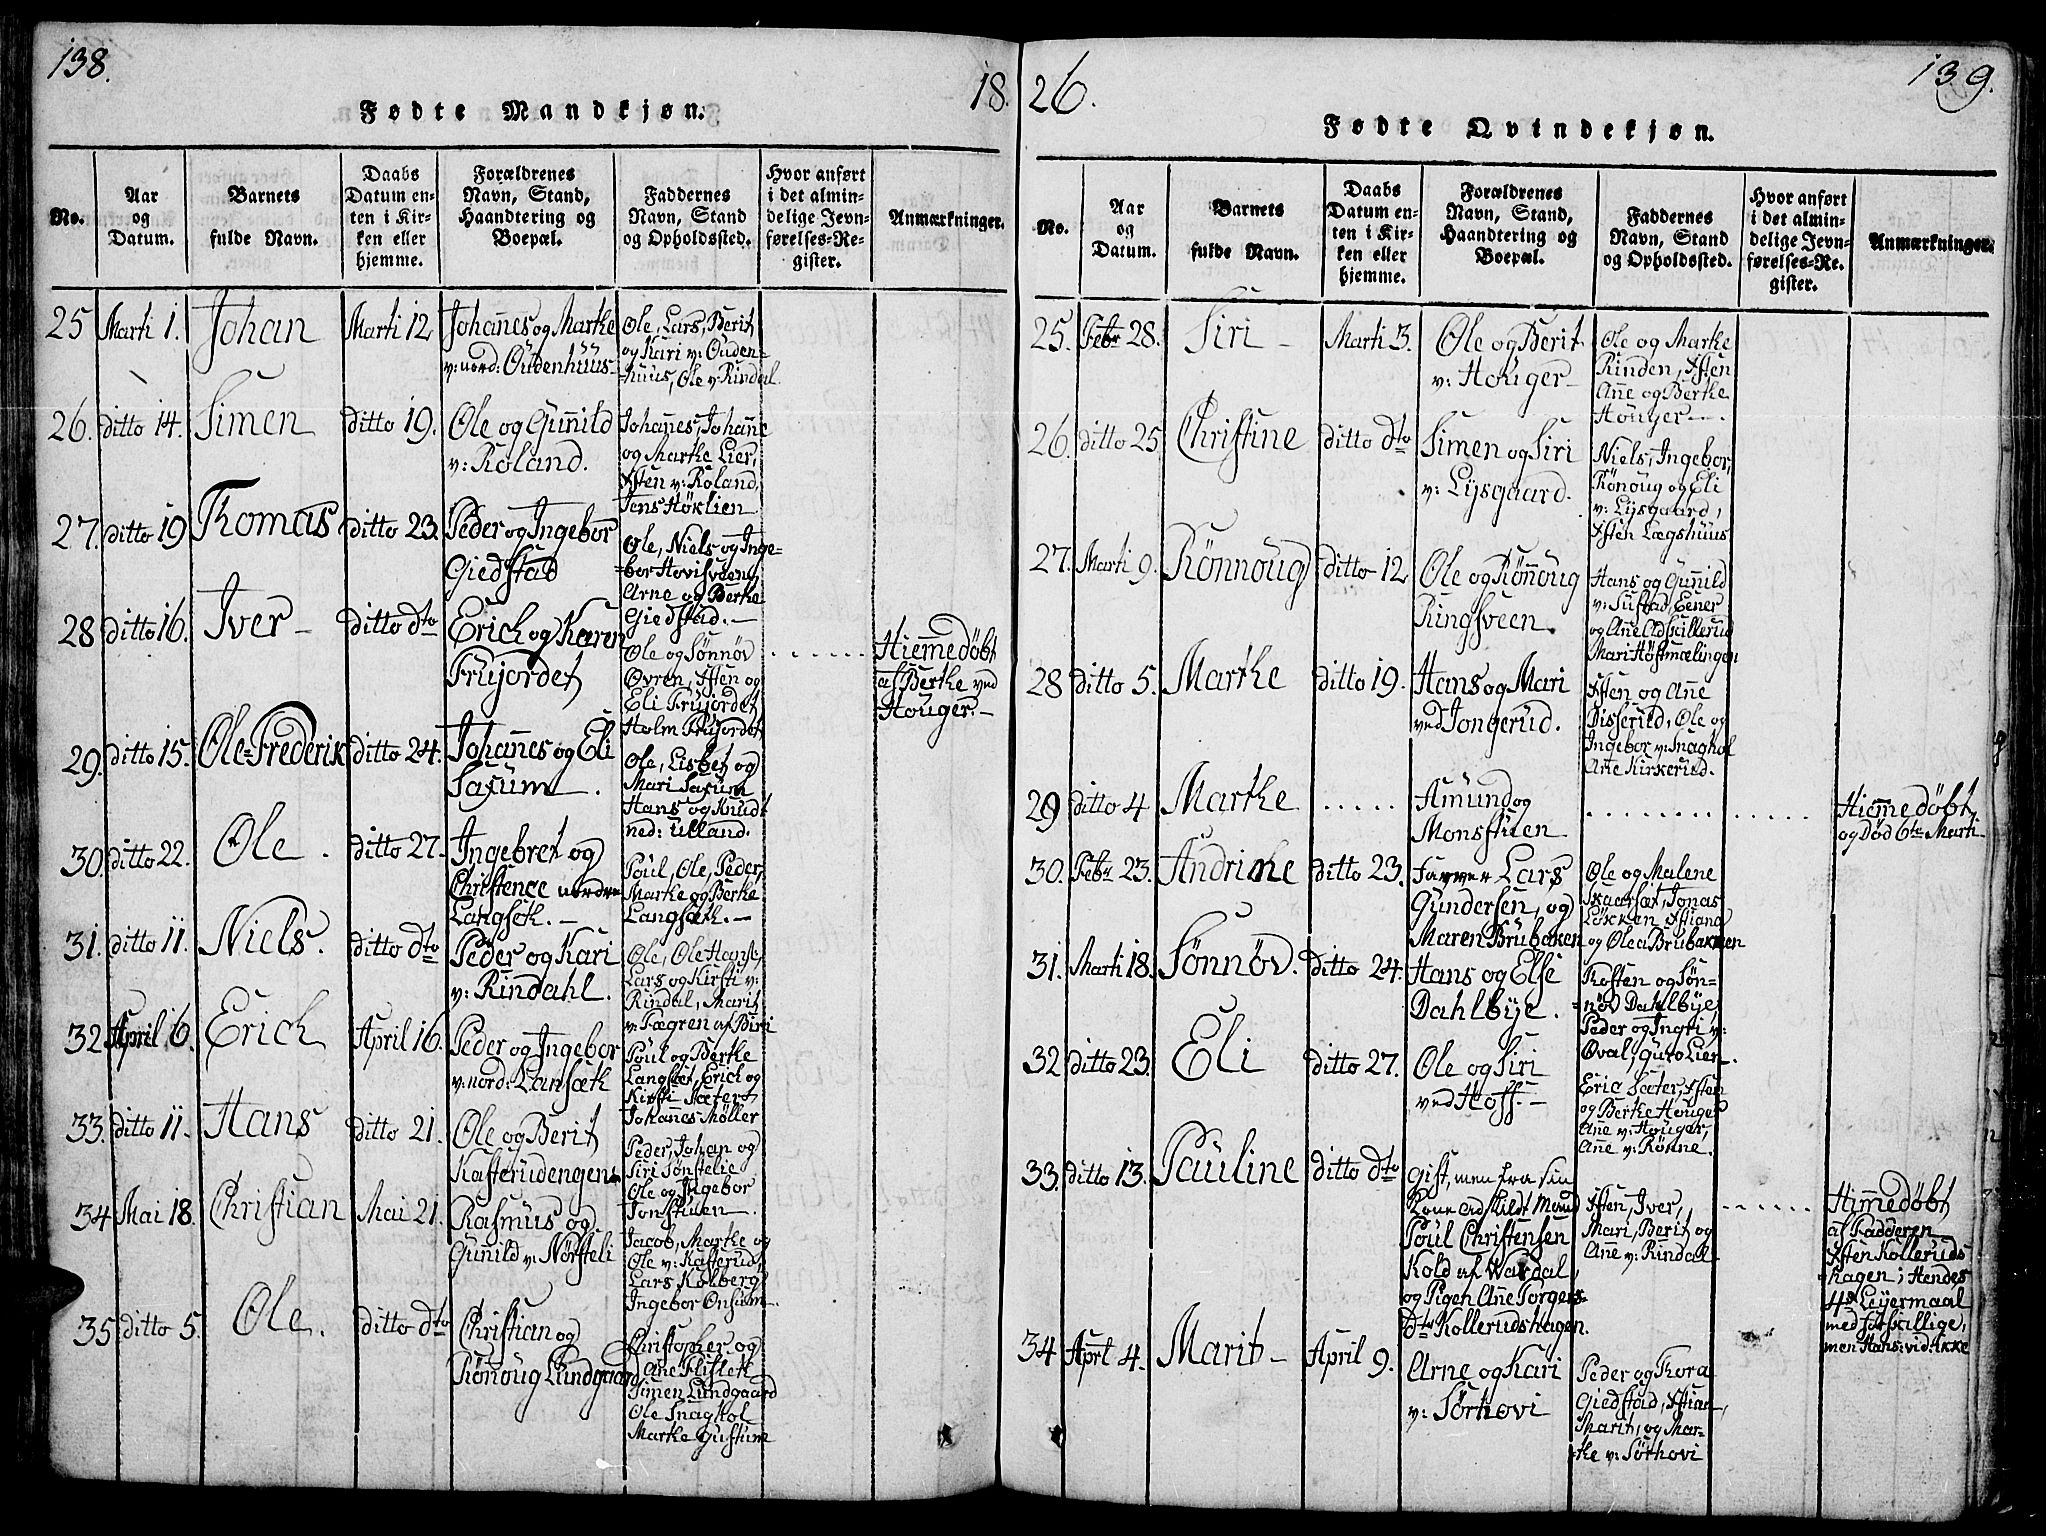 138.
18.
Fødte Mandkjøn.
No.
Aar
og
Datum.
Barnets
fulde Navn.
Daabs
Datum en-
ten i Kir-
ken eller
hjemme.
Forældrenes
Navn, Stand,
Haandtering og
Boepæl.
Faddernes
Navn, Stand
og Opholdssted.
Hvor anført
i det almin-
delige Jevn-
førelses-Re-
gister.
Anmærkninger.
25 Marti 1. Johan Marti 12
Johannes og Marthe
v: nord: Oudenhuus-
Ole, Lars, Berit
og Kari v: Ouden-
=huus, Ole v: Rindal
26. ditto 14. Simen ditto 19.
Ole og Gunild
v: Roland.
Johannes, Johanne
og Marthe Lier,
Isten v: Roland,
Jens Høklien
27. ditto 19 Thomas ditto 23.
Peder og Ingebor
Giedstad
Ole, Niels og Inge-
=bor Hovisveen,
Arne og Berthe
Giedstad.-
28 ditto 16. Iver - ditto dto
Erich og Karen
Frujordet
Ole og Sønnøv
Øvren, Isten og
Eli Frujordet,
Holm Frujordet
Hiemmedøbt
af Berthe ved
Houger.-
29. ditto 15. Ole=Frederik ditto 24.
Johannes og Eli
Saxum.
Ole, Lisbet og
Mari Saxum
Hans og Knudt
ned: Ulland.
30. ditto 22. Ole. ditto 27.
Ingebret og
Christence nordre
Langseth.-
Poul, Ole, Peder,
Marthe og Berthe
Langsæth.-
31. ditto 11. Niels. ditto dto
Peder og Kari
v: Rindahl.
Ole, Ole Hanse,
Lars og Kirsti v:
Rindal, Marit
v: Fægren af Biri
32 April 6. Erich April 16.
Peder og Ingebor
v: nord: Lansæth
Poul og Berthe
Langsæt, Erich og
Kirsti Sæter,
Johannes Møller
33. ditto 11. Hans ditto 21.
Ole og Berit
Kasterudengen
Peder, Johan og
Siri Sønstelie
Ole og Ingebor
Jonstuen.
34 Mai 18. Christian Mai 21.
Rasmus og
Gunild v: Nørsteli
Jacob, Marthe og
Ole v: Kasterud,
Lars Kolberg
Ingebor Onsum.
35 ditto 5. Ole. ditto dto
Christian og
Rønnoug Lundgaard
Christopher og
Ane Flisleth
Simen Lundgaard
Ole Snagkol
Marthe Gustum
26.
139.
Fødte Qvindekjøn.
No.
Aar
og
Datum.
Barnets
fulde Navn.
Daabs
Datum en-
ten i Kir-
ken eller
hjemme.
Forældrenes
Navn, Stand,
Haandtering og
Boepæl.
Faddernes
Navn, Stand
og Opholdssted.
Hvor anført
i det almin-
delige Jevn-
førelses-Re-
gister.
Anmærkninger.
25. Febr 28. Siri - Marti 3.
Ole og Berit
v: Houger-
Ole og Marthe
Rinden, Isten
Anne og Berthe
Houger-
26. ditto 25 Christine ditto dto
Simen og Siri
v: Lysgaard.
Niels, Ingebor,
Rønoug og Eli
v: Lysgaard,
Isten Lægshuus
27. Marti 9. Rønnoug ditto 12
Ole og Rønnoug
Ringsveen.
Hans og Gunild
v: Sustad, Eener
og Ane Adskillerud
Mari Høstmælingen
28 ditto 5. Marthe ditto 19.
Hans og Mari
ved Jongerud.
Isten og Anne
Disserud, Ole og
Ingebor v: Snagkol
Arne Kirkerud.
29 ditto 4 Marthe
Amund og
Monstuen
Hiemmedøbt,
og Død 6te Marti
30. Febr 23. Andrine ditto 23.
Farver Lars
Gundersen, og
Maren Brubaken
Ole og Malene
Skaarsæt, Jonas
Løkken, Istiana
og Olea Brubakken
31. Marti 18. Sønnøv. ditto 24.
Hans og Else
Dahlbye.
Kosten og Søn-
=nøv Dahlbye,
Peder og Ingri v:
Øval, Guro Lien.
32 ditto 23. Eli ditto 27.
Ole og Siri
ved Hoff.-
Eric Sæter, Isten
og Berthe Houger
Anne v: Houger,
Anne v: Røhne.
33. ditto 13. Pauline ditto dto
Gift, men fra sin
Kone adskildt Mand
Poul Christensen
Kold af Wardal,
og Pigen Ane Torgers-
dtr Kollerudshagen.
Isten, Iver,
Mari, Berit og
Anne v: Rindal
Himmedøbt
af Fadderen
Isten Kolleruds
hagen; Hendes
4de Leyermaal
med forskillige,
men Hans: vid: ikke
34 Aprl 4. Marit - April 9.
Arne og Kari
v: Sørhovi
Peder og Thora
Giedstad, Istian,
Marit, og Mar-
=the v: Sørhovi